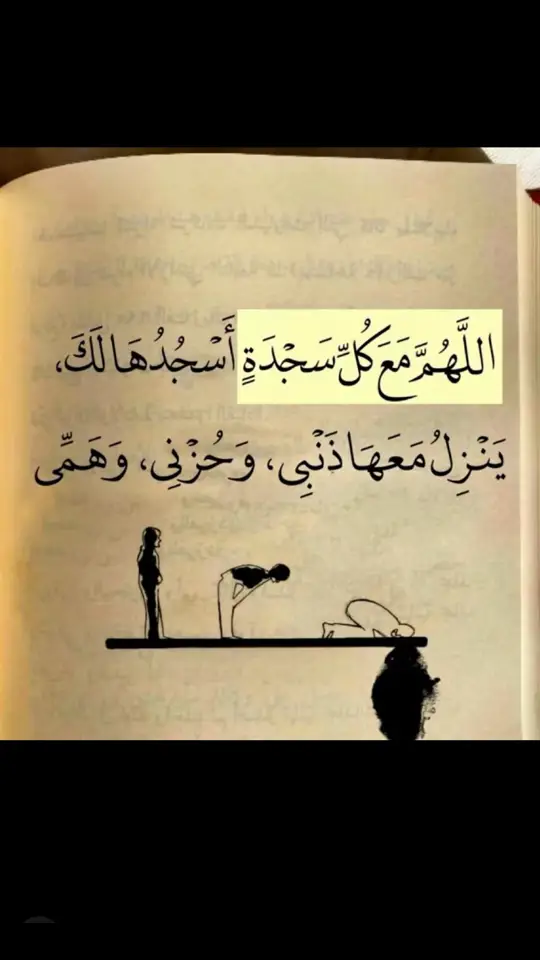 اللَّهُمَّ مَعَ كُلِّ سَجْدَةٍ أَسْجُدُهَا لَكَ،
يَنْزِلُ مَعَهَا ذَنْبِى، وَحُزْنِى، وَهَمِّى